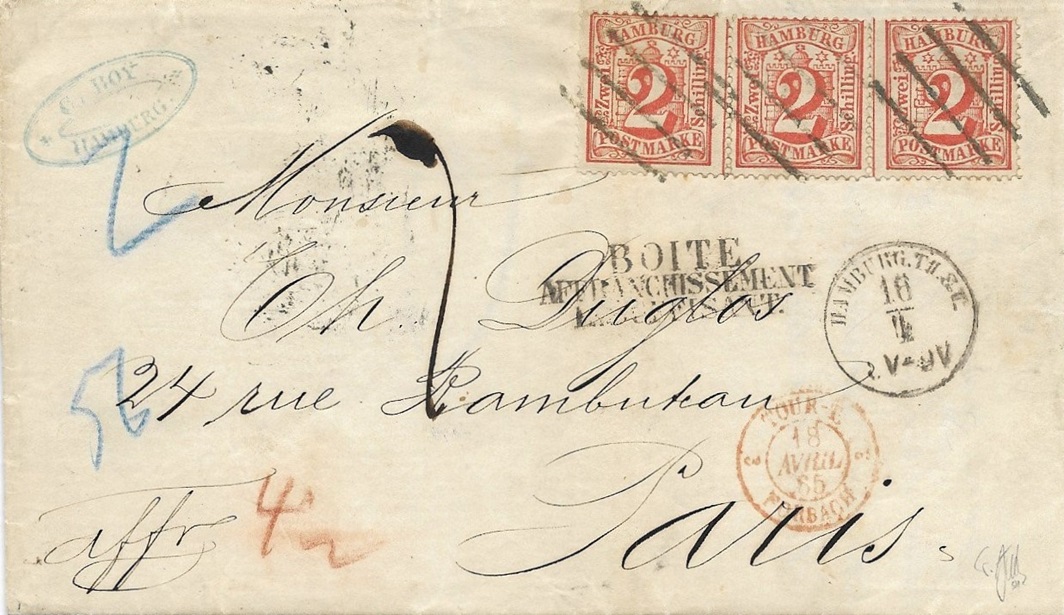 HAMBURG
Zwei 2 Schilling
POSTMARKE
HAMBURG
Zwei 2 Schilling
POSTMARKE
HAMBURG
Zwei 2 Schilling
POSTMARKE
BOY
HAMBURG
Monsieur
BOITE
AFFRANCHISSEMENT
Ch. Duglos
HAMBURG. TH. & T.
16
4
24 rue Rambuteau
TOUR-T
18
AVRIL
65
FORBACH
Paris
affr
4